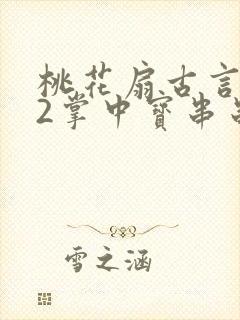 桃花扇古言
2掌中寳串
雪之涵